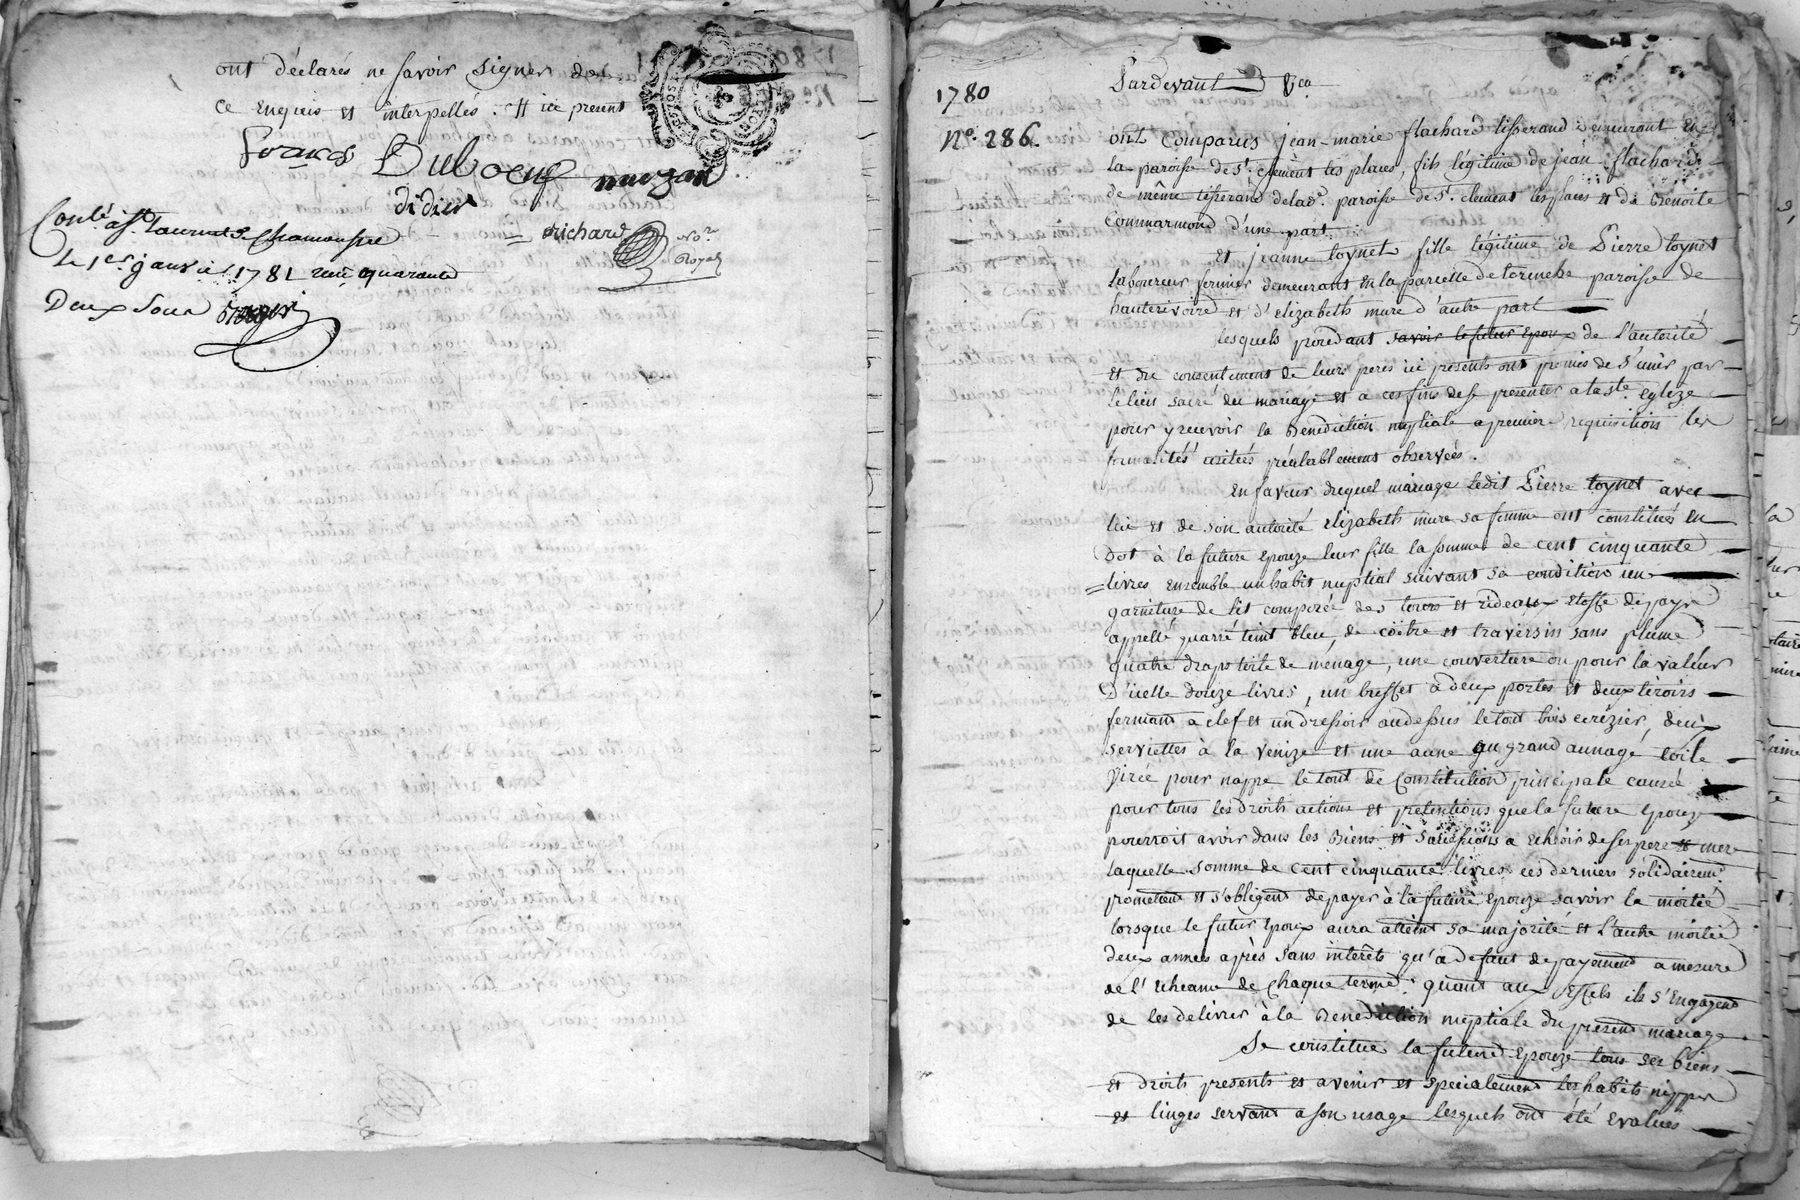 ont déclarés ne savoir signer de
ce enquis et interpellés. # icé present
Duboeuf
didier
richard No.re Royal
Contlé à St Laurent de chamousset
Le 1er janvier 1781 reçu quarante
Deux Sous
1780
Pardevant &ca
No. 286.
ont comparus jean-marie flachard tisserand demeurant en
la paroisse de St. clément les places, fils légitime de jean flachard
de même tisserand delad. paroisse de St. clement les places et de Benoite
Commarmond d'une part
et jeanne toynet fille légitime de Pierre toynet
laboureur fermier demeurants en la parcelle de paroisse de
hauterivoire et d'elizabeth mure d'autre part
lesquels procedant savoir le futur epoux de l'autorité
et du consentement de leurs peres icé présents ont promis de s'unir par
le lien sacré du mariage et a ces fins de se presenter a la ste. eglize
pour y recevoir la Benediction nuptiale a premiere requisition les
formalités usitées préalablement observées.
en faveur duquel mariage ledit Pierre toynet avec
lui et de son autorité elizabeth mure sa femme ont constitués en
Dot à la future epouze leur fille la somme de cent cinquante
livres ensemble un habit nuptial suivant sa condition une
garniture de lit composée des tours et rideaux etoffe du pays
appellé quarré teint bleu, de coëtre et traversin sans plume
quatre draps toile de ménage, une couverture ou pour la valeur
d'icelle douze livres, un buffet à deux portes et deux tiroirs
fermant a clef et un dressoir au dessus le tout bois cerézier, deux
serviettes à la venize et une aune du grand aunage toile
Virée pour nappe le tout de Constitution principale causée
pour tous les droits actions et pretentions que la future epouze
pourroit avoir dans les Biens et successions a echeoir de ses pere et mere
laquelle somme de cent cinquante livres ces derniers solidairemt.
promettent et s'obligent de payer à la future epouze savoir la moitié
lorsque le futur epoux aura atteint sa majorité et l'autre moitié
deux annees après sans interêts qu'a defaut de payement a mesure
de l'echeance de chaque terme. quant aux Effets ils s'engagent
de les delivrer à la Benediction nuptiale du présent mariage
Se constitue la future epouze tous ses biens
et droits presents et avenir et specialement les habits nippes
et linges servant a son usage lesquels ont été evalués